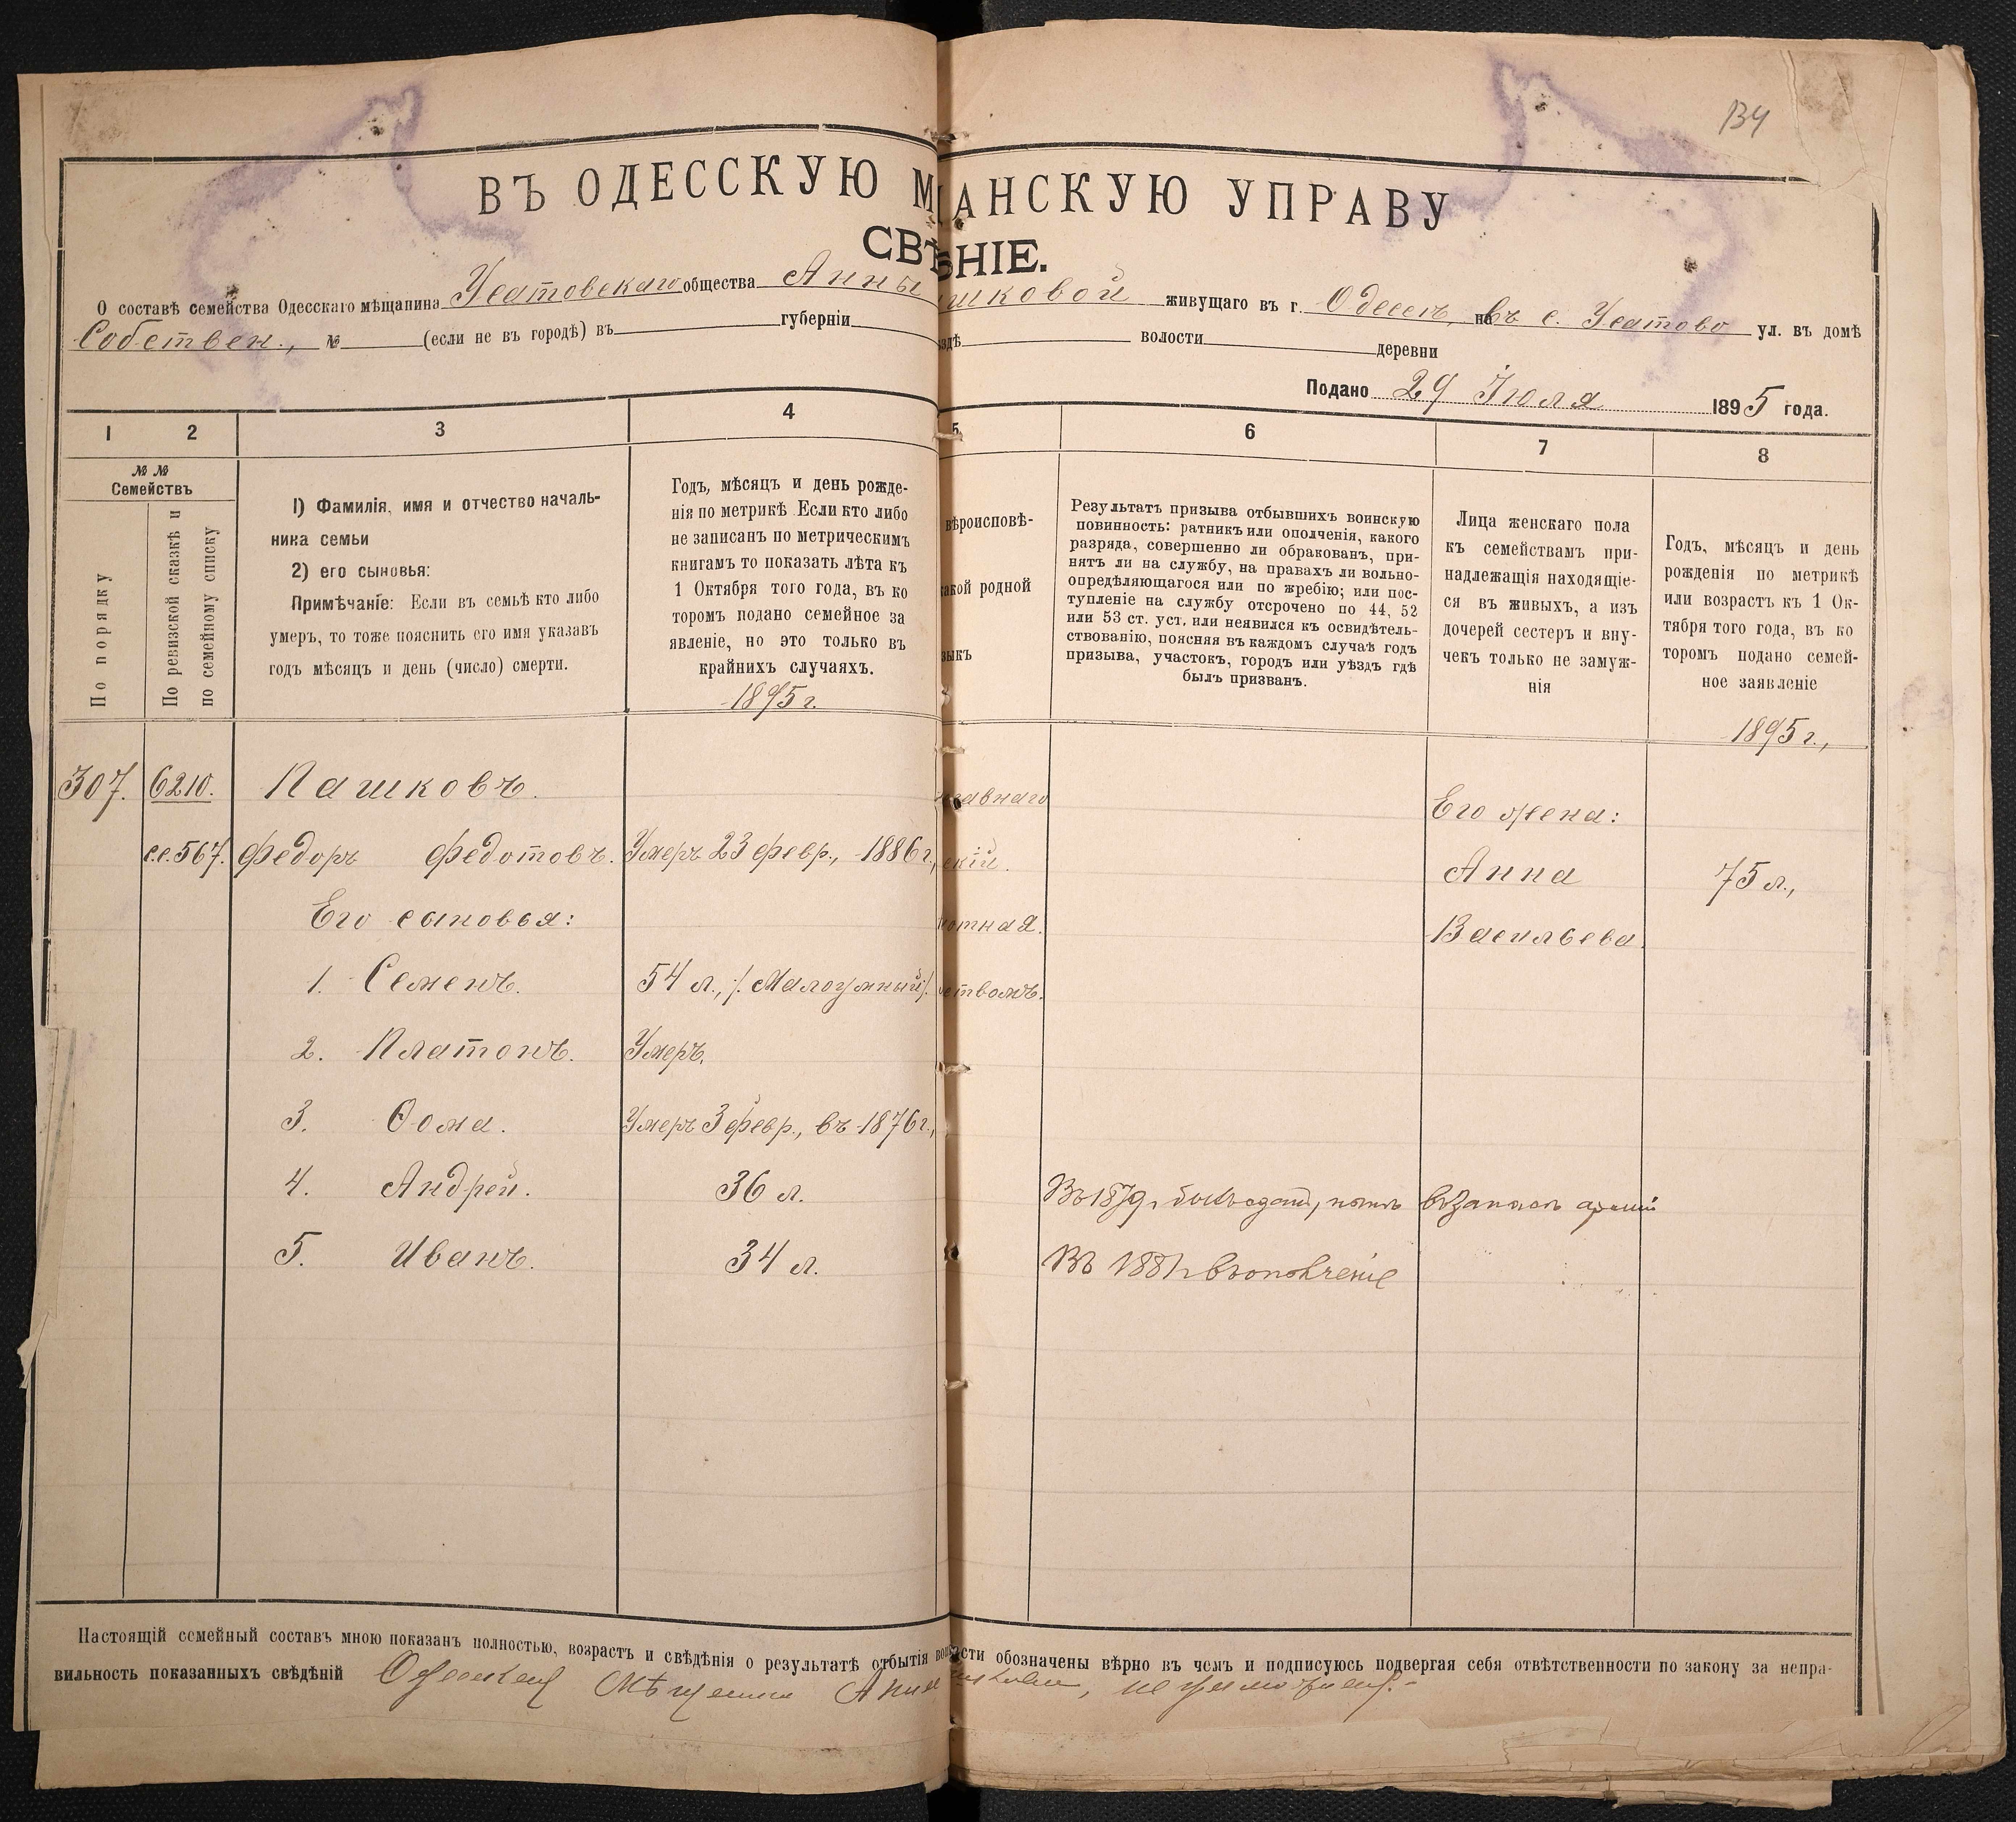 134
ВЪ ОДЕССКУЮ М АНСКУЮ УПРАВУ
СВѢ НІЕ.
О составѣ семейства Одесскаго мѣщанина Усатовскаго общества Анны шковой живущаго въ г. Одессѣ, на въ с. Усатово ул. въ домѣ
Собствен., № (если не въ городѣ) въ губерніи здѣ волости деревни
Подано 29 Іюля 1895 года.
1 2 3 4 5 6 7 8
№ №
Семействъ
По порядку
По ревизской сказкѣ и
по семейному списку
1) Фамилія, имя и отчество началь-
ника семьи
2) его сыновья:
Примѣчаніе: Если въ семьѣ кто либо
умеръ, то тоже пояснить его имя указавъ
годъ мѣсяцъ и день (число) смерти.
Годъ, мѣсяцъ и день рожде-
нія по метрикѣ Если кто либо
не записанъ по метрическимъ
книгамъ то показать лѣта къ
1 Октября того года, въ ко
торомъ подано семейное за
явленіе, но это только въ
крайнихъ случаяхъ.
1895 г.
вѣроисповѣ-
акой родной
зыкъ
Результатъ призыва отбывшихъ воинскую
повинность: ратникъ или ополченія, какого
разряда, совершенно ли обракованъ, при-
нятъ ли на службу, на правахъ ли вольно-
опредѣляющагося или по жребію; или пос-
тупленіе на службу отсрочено по 44, 52
или 53 ст. уст. или неявился къ освидѣтель-
ствованію, поясняя въ каждомъ случаѣ годъ
призыва, участокъ, городъ или уѣздъ гдѣ
былъ призванъ.
Лица женскаго пола
къ семействамъ при-
надлежащія находящіе-
ся въ живыхъ, а изъ
дочерей сестеръ и вну-
чекъ только не замуж-
нія
Годъ, мѣсяцъ и день
рожденія по метрикѣ
или возрастъ къ 1 Ок-
тября того года, въ ко
торомъ подано семей-
ное заявленіе
1895 г.,
307. 6210. Пашковъ. славнаго Его жена:
с.с. 567. Федоръ Федотовъ. Умеръ 23 февр., 1886 г., скій. Анна 75 л.,
Его сыновья: отная. Васильева.
1. Семенъ. 54 л., /. Малоумный/. ствомъ.
2. Платонъ. Умеръ.
3. Ѳома. Умеръ 3 февр., въ 1876 г.,
4. Андрей. 36 л. Въ 1879 г. былъ сданъ, нынѣ въ запасѣ арміи
5. Иванъ. 34 л. Въ 1881 г. въ ополченіе
Настоящій семейный составъ мною показанъ полностью, возрастъ и свѣдѣнія о результатѣ отбытія вои ости обозначены вѣрно въ чемъ и подписуюсь подвергая себя отвѣтственности по закону за непра-
вильность показанныхъ свѣдѣній Одесская Мѣщанка Анна шкова, неграмотная.